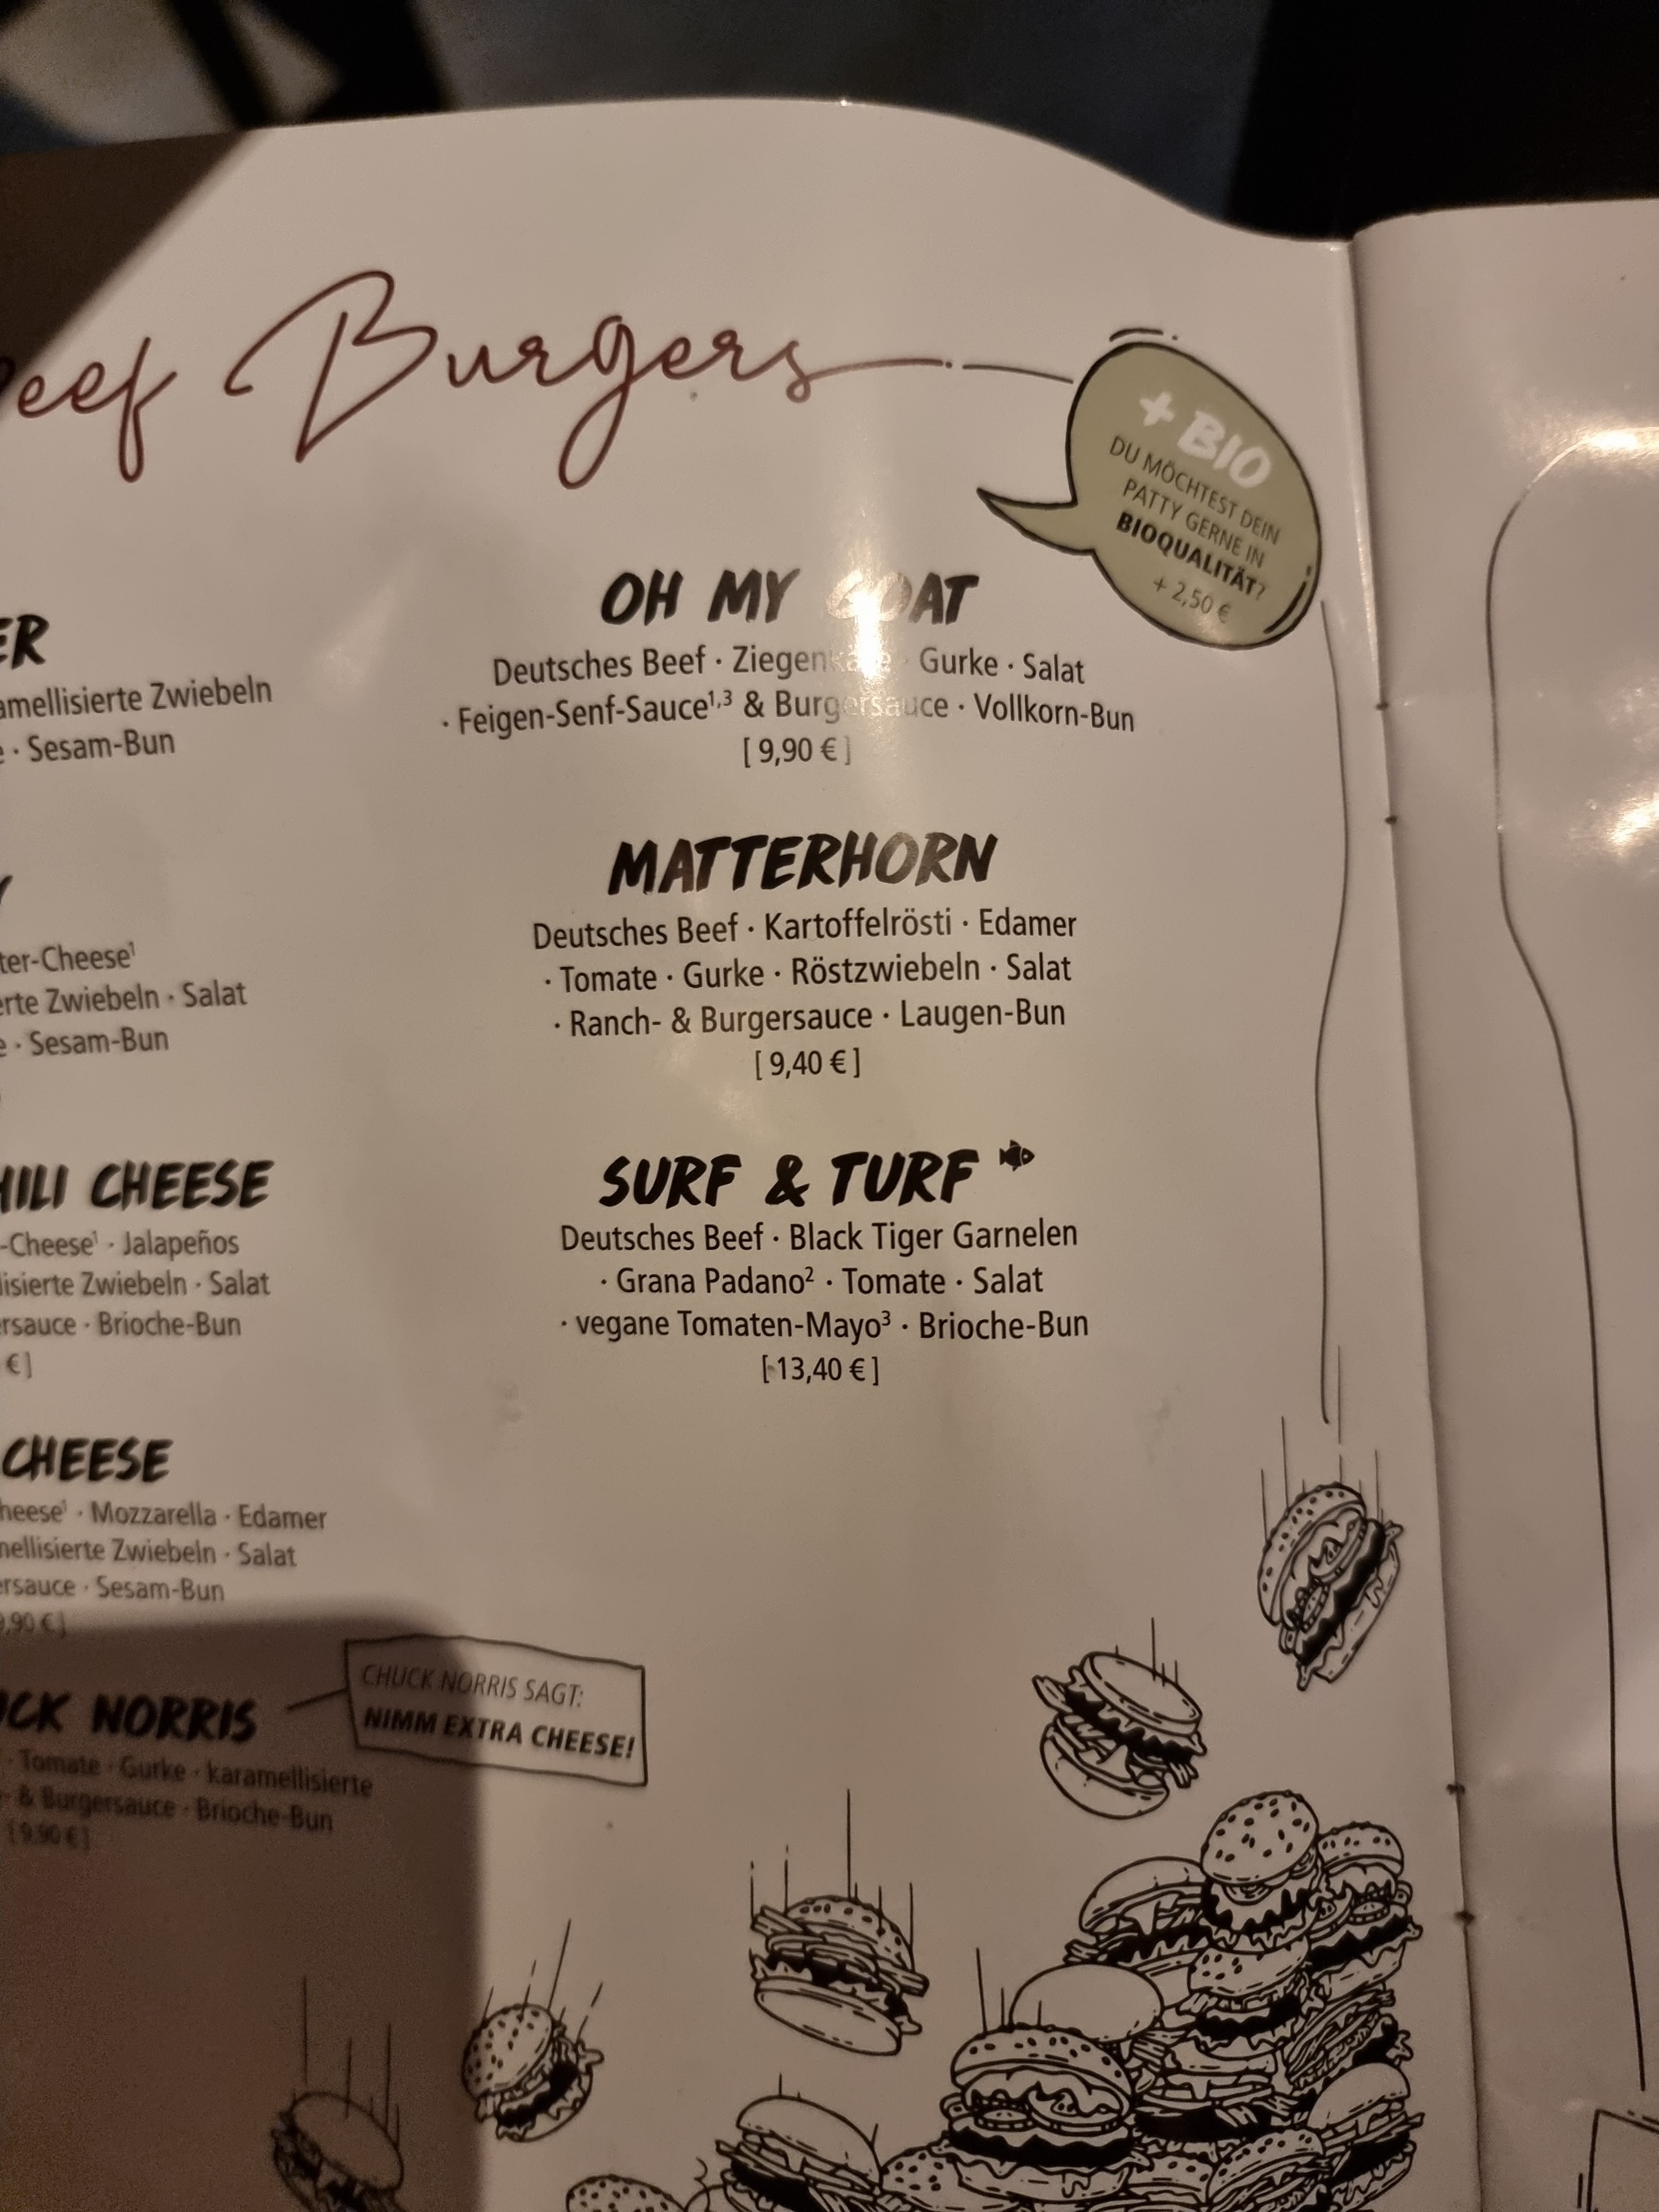 Beef Burgers
+ BIO
DU MÖCHTEST DEIN
PATTY GERNE IN
BIOQUALITÄT?
+ 2,50 €
CHEESE
heese¹ · Mozzarella · Edamer
Zwiebeln · Salat
· Sesam-Bun
9,90 €]
Zwiebeln
· Sesam-Bun
ter-Cheese¹
Zwiebeln · Salat
· Sesam-Bun
CHEESE
-Cheese¹ · Jalapeños
Zwiebeln · Salat
· Brioche-Bun
€]
NORRIS
CHUCK NORRIS SAGT:
NIMM EXTRA CHEESE!
· Tomate · Gurke · karamellisierte
& Burgersauce · Brioche-Bun
[9,90 €]
OH MY GOAT
Deutsches Beef · Ziegenkäse · Gurke · Salat
· Feigen-Senf-Sauce¹,³ & Burgersauce · Vollkorn-Bun
[ 9,90 € ]
MATTERHORN
Deutsches Beef · Kartoffelrösti · Edamer
· Tomate · Gurke · Röstzwiebeln · Salat
· Ranch- & Burgersauce · Laugen-Bun
[ 9,40 € ]
SURF & TURF
Deutsches Beef · Black Tiger Garnelen
· Grana Padano² · Tomate · Salat
· vegane Tomaten-Mayo³ · Brioche-Bun
[ 13,40 € ]